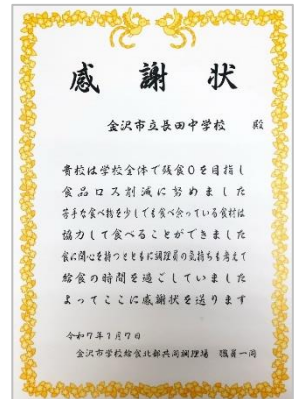 感謝状
金沢市立長田中学校 殿
貴校は学校全体で残食0を目指し
食品ロス削減に努めました
苦手な食べ物を少しでも食べ余っている食材は
協力して食べることができました
食に関心を持つとともに調理員の気持ちも考えて
給食の時間を過ごしていました
よってここに感謝状を送ります
令和7年7月7日
金沢市学校給食北部共同調理場 職員一同